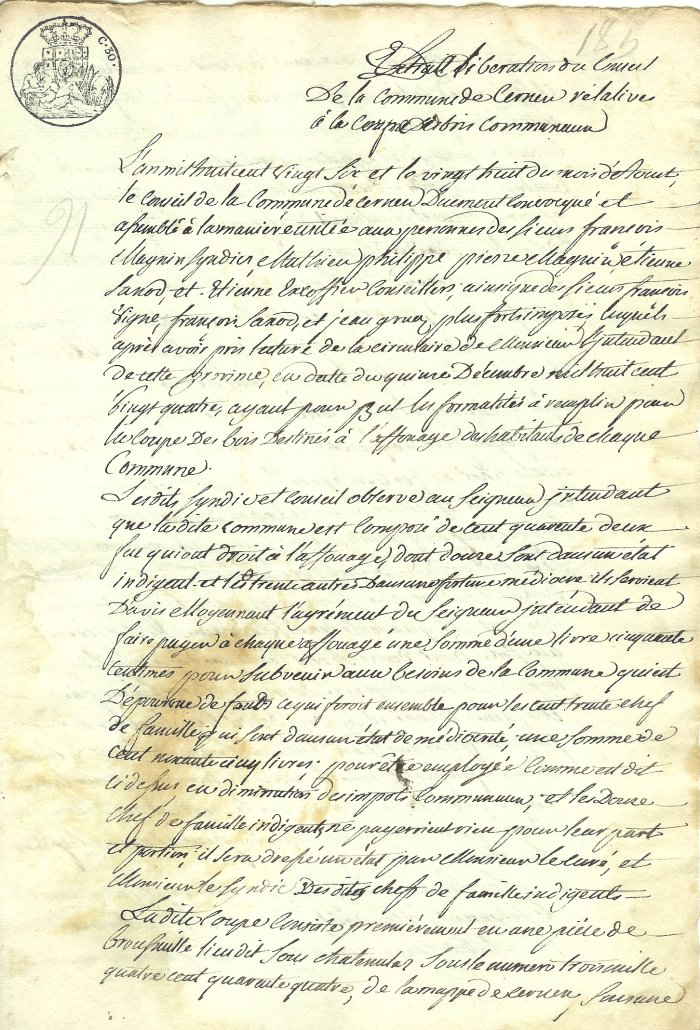 C. 50.
185
Extrait Déliberation du Conseil
De la Commune de Cernex rélatives
à la Coupe Des bois Communaux
91
L'an mil huit cent vingt Six et le vingt huit du mois d'Aout,
le Conseil de la Commune de cernex Duement Convoqué et
assemblé à la manière usitée aux personnes des sieurs françois
Magnin Syndic, Mathieu philippe pierre Magnin étienne
Sanod, et Etienne Excoffier Conseillers, ainsi que des sieurs françois
Vigne, françois Sanod, et jean gruaz plus forts imposés lesquels
après avoir pris lecture de la circulaire de Monsieur l'Intendant
de cette province, en datte du quinze Décembre mil huit cent
vingt quatre, ayant pour But les formalités à remplir pour
la Coupe Des bois Destinés à l'affouage des habitants de chaque
Commune.
Lesdits Syndic et Conseil observe au Seigneur intendant
que ladite Commune est Composé de Cent quarente deux
feu qui ont droit à l'affouage, dont douze sont dans un état
indigent et les trente autres Dans une fortune médiocre ils seroient
Davis Moyennant l'agrément du Seigneur intendant de
faire payer à chaque affouagé une Somme d'une livre cinquante
centimes pour subvenir aux besoins de la Commune qui est
Dépourvue de fonds ce qui feroit ensemble pour les cent trente chef
de famille qui sont dans un état de médiocrité, une Somme de
Cent nonante cinq livres pour être employée Comme est dit
cidessus en diminution des impots Communaux, et les Douze
Chef de famille indigent, ne payerrient rien pour leur part
et portion, il sera dressé un état par Monsieur le Curé, et
Monsieur le Syndic Desdites chefs de famille indigents
La dite Coupe Consiste premièrement en une pièce de
broussaille lieudit Sous chatenulaz Sous le numéro trois mille
quatre cent quarante quatre, de la mappe de cernex, faisant